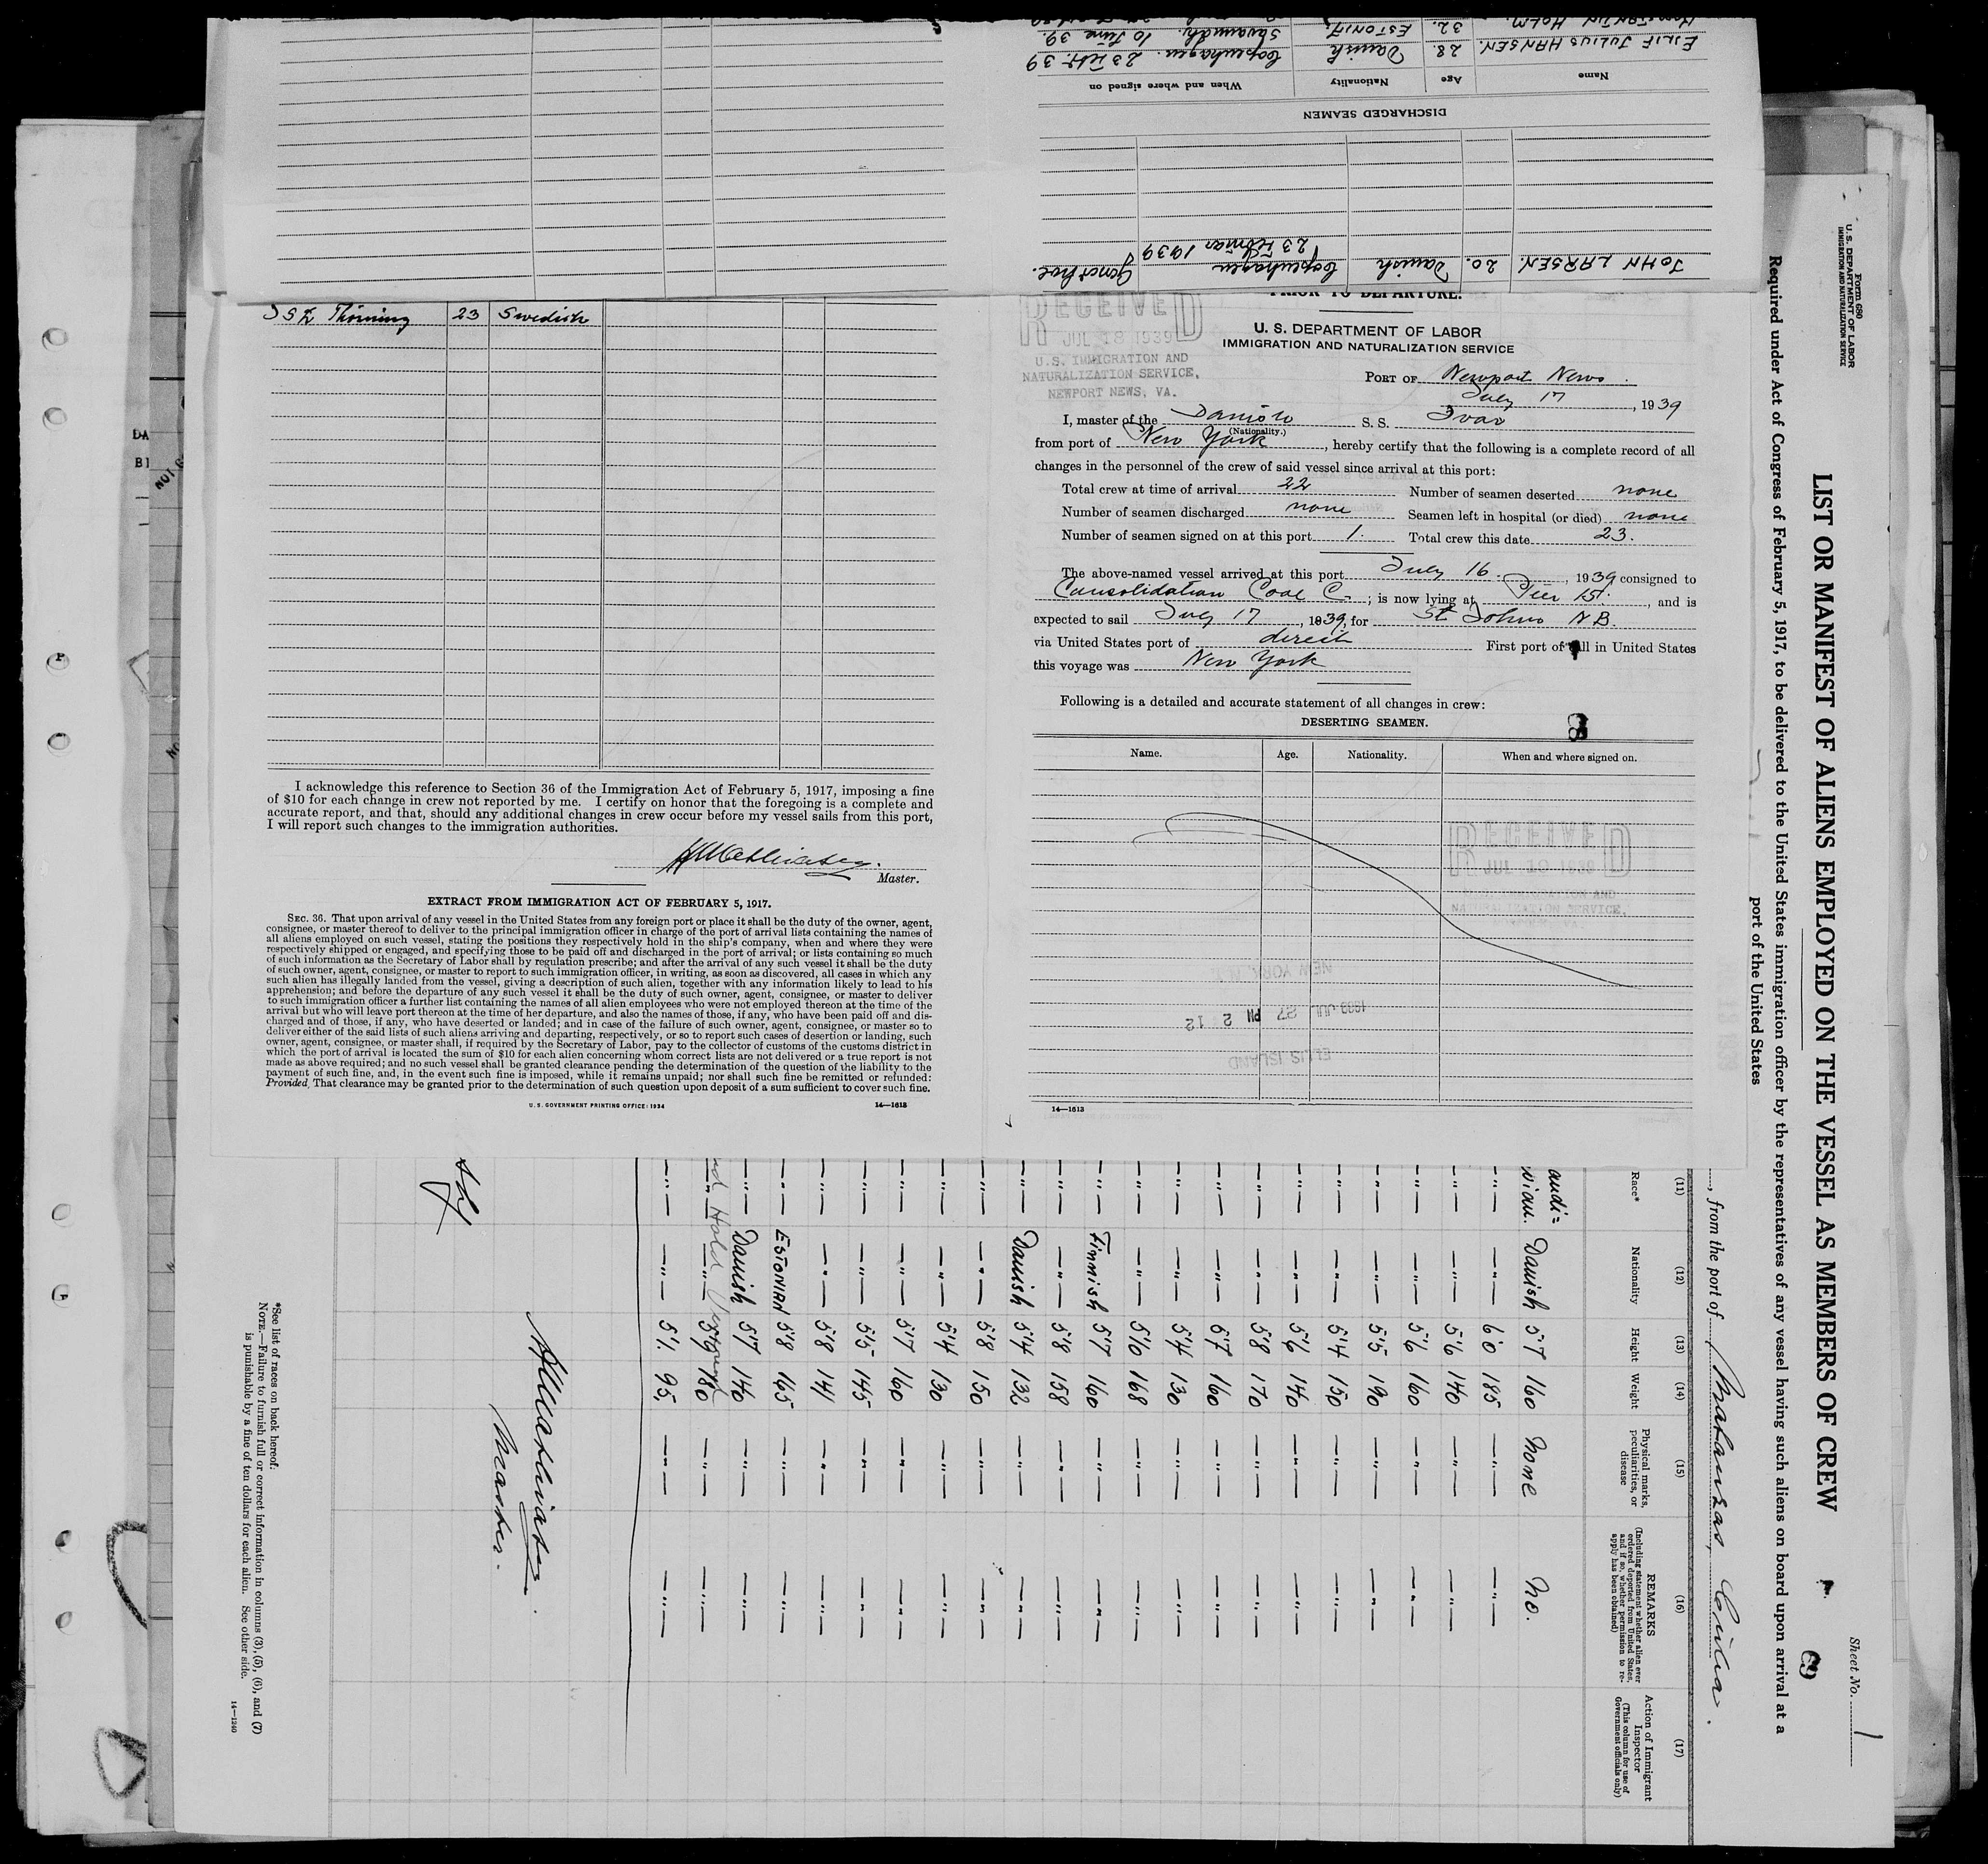 KONSTANTIN HOLM. 32. ESTONIA.
EILIF JULIUS HANSEN. 28. Danish Copenhagen. 23 Feb. 39
Savannah. 10 June 39.
Name Age Nationality When and where signed on
DISCHARGED SEAMEN
JOHN LARSEN. 20. Danish Copenhagen
23 Februar 1939
Thorning 23 Swedish
I acknowledge this reference to Section 36 of the Immigration Act of February 5, 1917, imposing a fine
of $10 for each change in crew not reported by me. I certify on honor that the foregoing is a complete and
accurate report, and that, should any additional changes in crew occur before my vessel sails from this port,
I will report such changes to the immigration authorities.
Master.
EXTRACT FROM IMMIGRATION ACT OF FEBRUARY 5, 1917.
SEC. 36. That upon arrival of any vessel in the United States from any foreign port or place it shall be the duty of the owner, agent,
consignee, or master thereof to deliver to the principal immigration officer in charge of the port of arrival lists containing the names of
all aliens employed on such vessel, stating the positions they respectively hold in the ship's company, when and where they were
respectively shipped or engaged, and specifying those to be paid off and discharged in the port of arrival; or lists containing so much
of such information as the Secretary of Labor shall by regulation prescribe; and after the arrival of any such vessel it shall be the duty
of such owner, agent, consignee, or master to report to such immigration officer, in writing, as soon as discovered, all cases in which any
such alien has illegally landed from the vessel, giving a description of such alien, together with any information likely to lead to his
apprehension; and before the departure of any such vessel it shall be the duty of such owner, agent, consignee, or master to deliver
to such immigration officer a further list containing the names of all alien employees who were not employed thereon at the time of the
arrival but who will leave port thereon at the time of her departure, and also the names of those, if any, who have been paid off and dis-
charged and of those, if any, who have deserted or landed; and in case of the failure of such owner, agent, consignee, or master so to
deliver either of the said lists of such aliens arriving and departing, respectively, or so to report such cases of desertion or landing, such
owner, agent, consignee, or master shall, if required by the Secretary of Labor, pay to the collector of customs of the customs district in
which the port of arrival is located the sum of $10 for each alien concerning whom correct lists are not delivered or a true report is not
made as above required; and no such vessel shall be granted clearance pending the determination of the question of the liability to the
payment of such fine, and, in the event such fine is imposed, while it remains unpaid; nor shall such fine be remitted or refunded:
Provided, That clearance may be granted prior to the determination of such question upon deposit of a sum sufficient to cover such fine.
U. S. GOVERNMENT PRINTING OFFICE: 1934 14—1613
PRIOR TO DEPARTURE.
RECEIVED
JUL 18 1939
U.S. IMMIGRATION AND
NATURALIZATION SERVICE,
NEWPORT NEWS, VA.
U. S. DEPARTMENT OF LABOR
IMMIGRATION AND NATURALIZATION SERVICE
PORT OF Newport News.
July 17, 1939
I, master of the Danish S. S. Ivar
(Nationality.)
from port of New York, hereby certify that the following is a complete record of all
changes in the personnel of the crew of said vessel since arrival at this port:
Total crew at time of arrival 22 Number of seamen deserted none
Number of seamen discharged none Seamen left in hospital (or died) none
Number of seamen signed on at this port 1. Total crew this date 23.
The above-named vessel arrived at this port July 16, 1939 consigned to
Consolidation Coal C.; is now lying at Pier 15, and is
expected to sail July 17, 1939, for St Johns NB.
via United States port of direct First port of call in United States
this voyage was New York
Following is a detailed and accurate statement of all changes in crew:
DESERTING SEAMEN.
Name. Age. Nationality. When and where signed on.
RECEIVED
JUL 10 1939
NATURALIZATION SERVICE,
NEW YORK, N.Y.
1939 JUL 27 PM 2 12
ELLIS ISLAND
14—1613
Form 680
U. S. DEPARTMENT OF LABOR
IMMIGRATION AND NATURALIZATION SERVICE
Sheet No. 1
LIST OR MANIFEST OF ALIENS EMPLOYED ON THE VESSEL AS MEMBERS OF CREW
69
Required under Act of Congress of February 5, 1917, to be delivered to the United States immigration officer by the representatives of any vessel having such aliens on board upon arrival at a
port of the United States
, from the port of Matanzas, Cuba.
(11) (12) (13) (14) (15) (16) (17)
Race* Nationality Height Weight Physical marks, peculiarities, or disease REMARKS (Including statement whether alien ever ordered deported from United States, and if so, whether permission to reapply has been obtained) Action of Immigrant Inspector (This column for use of Government officials only)
andi=
vian. Danish 5'7 160 None No.
—"— —"— 6'0 185 —"— —"—
—"— —"— 5'6 140 —"— —"—
—"— —"— 5'6 160 —"— —"—
—"— —"— 5'5 190 —"— —"—
—"— —"— 5'4 150 —"— —"—
—"— —"— 5'6 146 —"— —"—
—"— —"— 5'8 170 —"— —"—
—"— —"— 5'7 160 —"— —"—
—"— —"— 5'4 130 —"— —"—
—"— —"— 5'10 168 —"— —"—
—"— Finnish 5'7 160 —"— —"—
—"— —"— 5'8 158 —"— —"—
—"— Danish 5'4 132 —"— —"—
—"— —"— 5'8 150 —"— —"—
—"— —"— 5'4 130 —"— —"—
—"— —"— 5'7 160 —"— —"—
—"— —"— 5'5 145 —"— —"—
—"— —"— 5'8 141 —"— —"—
—"— ESTONIAN 5'8 165 —"— —"—
—"— Danish 5'7 146 —"— —"—
—"— —"— 5'9 180 —"— —"—
—"— —"— 5'1. 95. —"— —"—
Master.
*See list of races on back hereof.
NOTE.—Failure to furnish full or correct information in columns (3), (5), (6), and (7)
is punishable by a fine of ten dollars for each alien. See other side.
14—1240